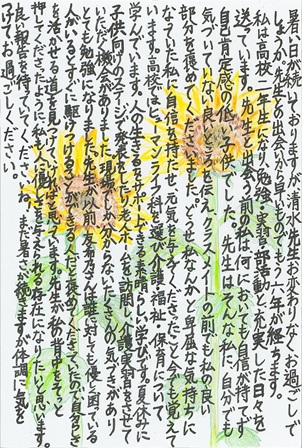 暑い日が続いておりますが、清水先生お変わりなくお過ごしで
しょうか。先生との出会いから早いもので、もう六年が経ちます。
私は高校二年生になり、勉強、実習、部活動と充実した日々を
送っています。先生と出会う前の私は何においても自信が持てず、
自己肯定感の低い子供でした。先生はそんな私に、自分でも
気づいていない良さを伝え、クラスメイトの前でも私の良い
部分を褒めてくださいました。どうせ私なんかと卑屈な気持ちに
なっていた私に自信を持たせ、元気にさせてくださったこと、今でも覚えて
います。高校ではヒューマンライフ科を選び、介護、福祉、保育について
学んでいます。人の生きるをサポートできる素晴らしい学びです。夏休みに
子供向けのステージ発表をしたり、老人ホームを訪問し、介護実習をさせて
いただく機会がありました。現場でしか分からないたくさんの気づきがあり、
とても勉強になりました。先生が以前、友希乃さんは誰に対しても優しく困っている
人がいるとすぐに駆けつけることができる人だと褒めてくださっていたので、自分らしさ
を活かせる道を見つけて進めればと思っています。先生が私の背中をそっと
押してくださったように、私も人に勇気を与えられる存在になりたいと思います。
良い報告を待っていてくださいね。まだ暑さが続きますが、体調に気を
つけてお過ごしください。